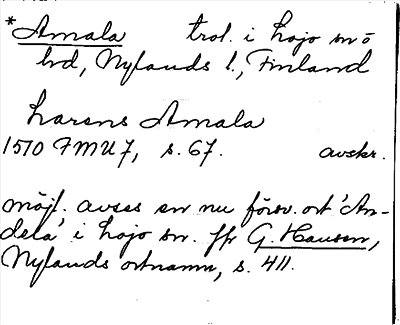 *Amala trol. i Lojo sn o
hd, Nylands l., Finland
Larens Amala
1570 FMU 7, s. 67. avskr.
möjl. avses en nu försv. ort 'An-
dela' i Lojo sn. jfr G. Hausen,
Nylands ortnamn, s. 411.